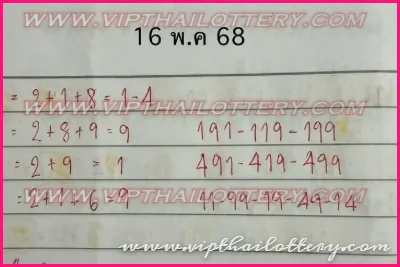 WWW.VIPTHAILOTTERY.COM
16 พ.ค 68
= 2+1+8 = 1-4
WWW.VIPTHAILOTTERY.COM
= 2+8+9 = 9 191-119-199
= 2+9 = 1 491-419-499
WWW.VIPTHAILOTTERY.COM
= 2+1+6 = 9 11-99-19-49-14
www.vipthailottery.com